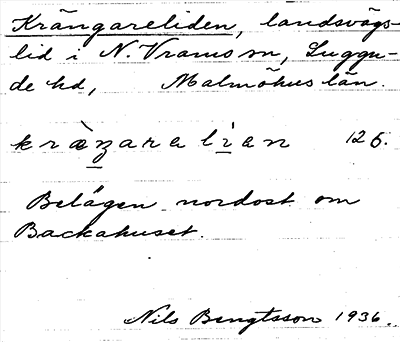 Krångareliden, landsvägs-
lid i N. Vrams sn, Luggu-
de hd, Malmöhus län.
kràŋaralian 126.
Belägen nordost om
Backahuset.
Nils Bengtsson 1936.